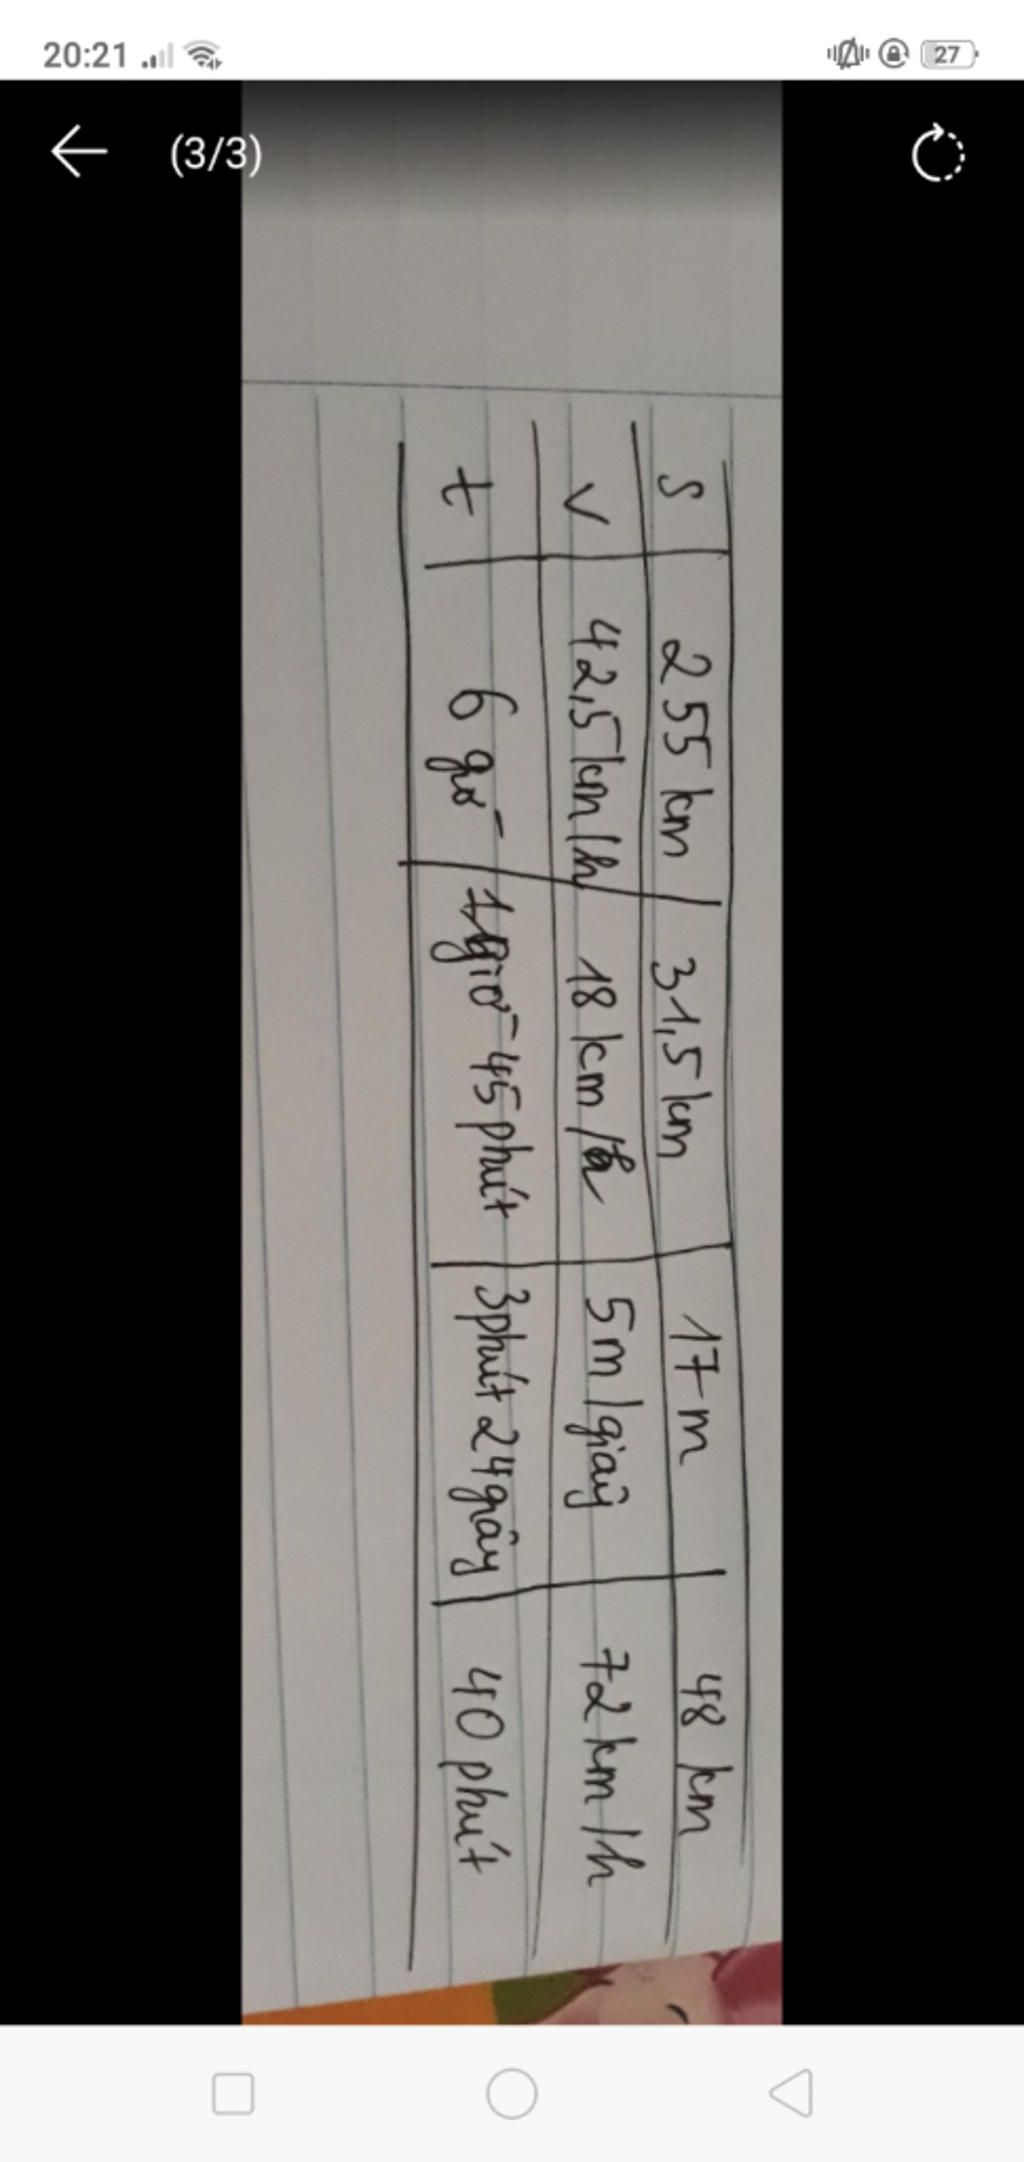 20:21
27
(3/3)
s 255 km 31,5 km 17 m 48 km
v 42,5 km/h 18 km/h 5 m/giây 72 km/h
t 6 giờ 1 giờ 45 phút 3 phút 24 giây 40 phút